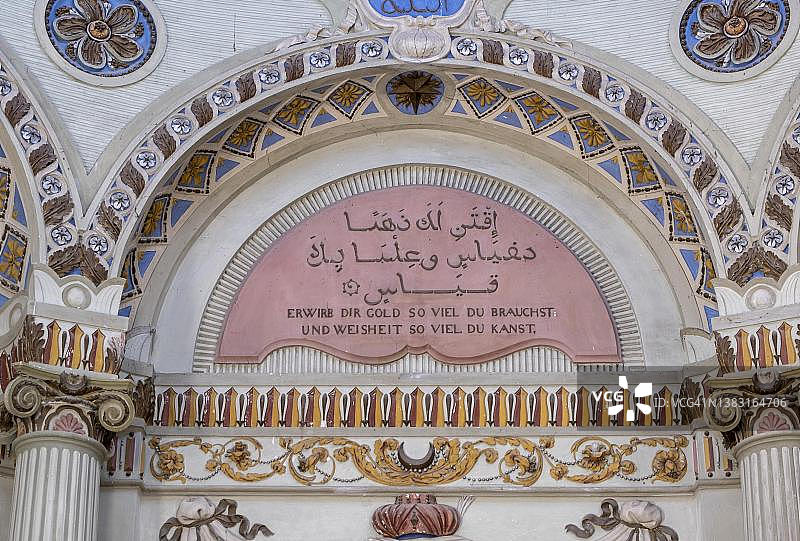 إقْتَنِ لَكَ ذَهَبًا
بقياسٍ وعِلمًا بِلا
قيـــاسٍ
ERWIRB DIR GOLD SO VIEL DU BRAUCHST.
UND WEISHEIT SO VIEL DU KANST,
VCG VCG41N1383164706